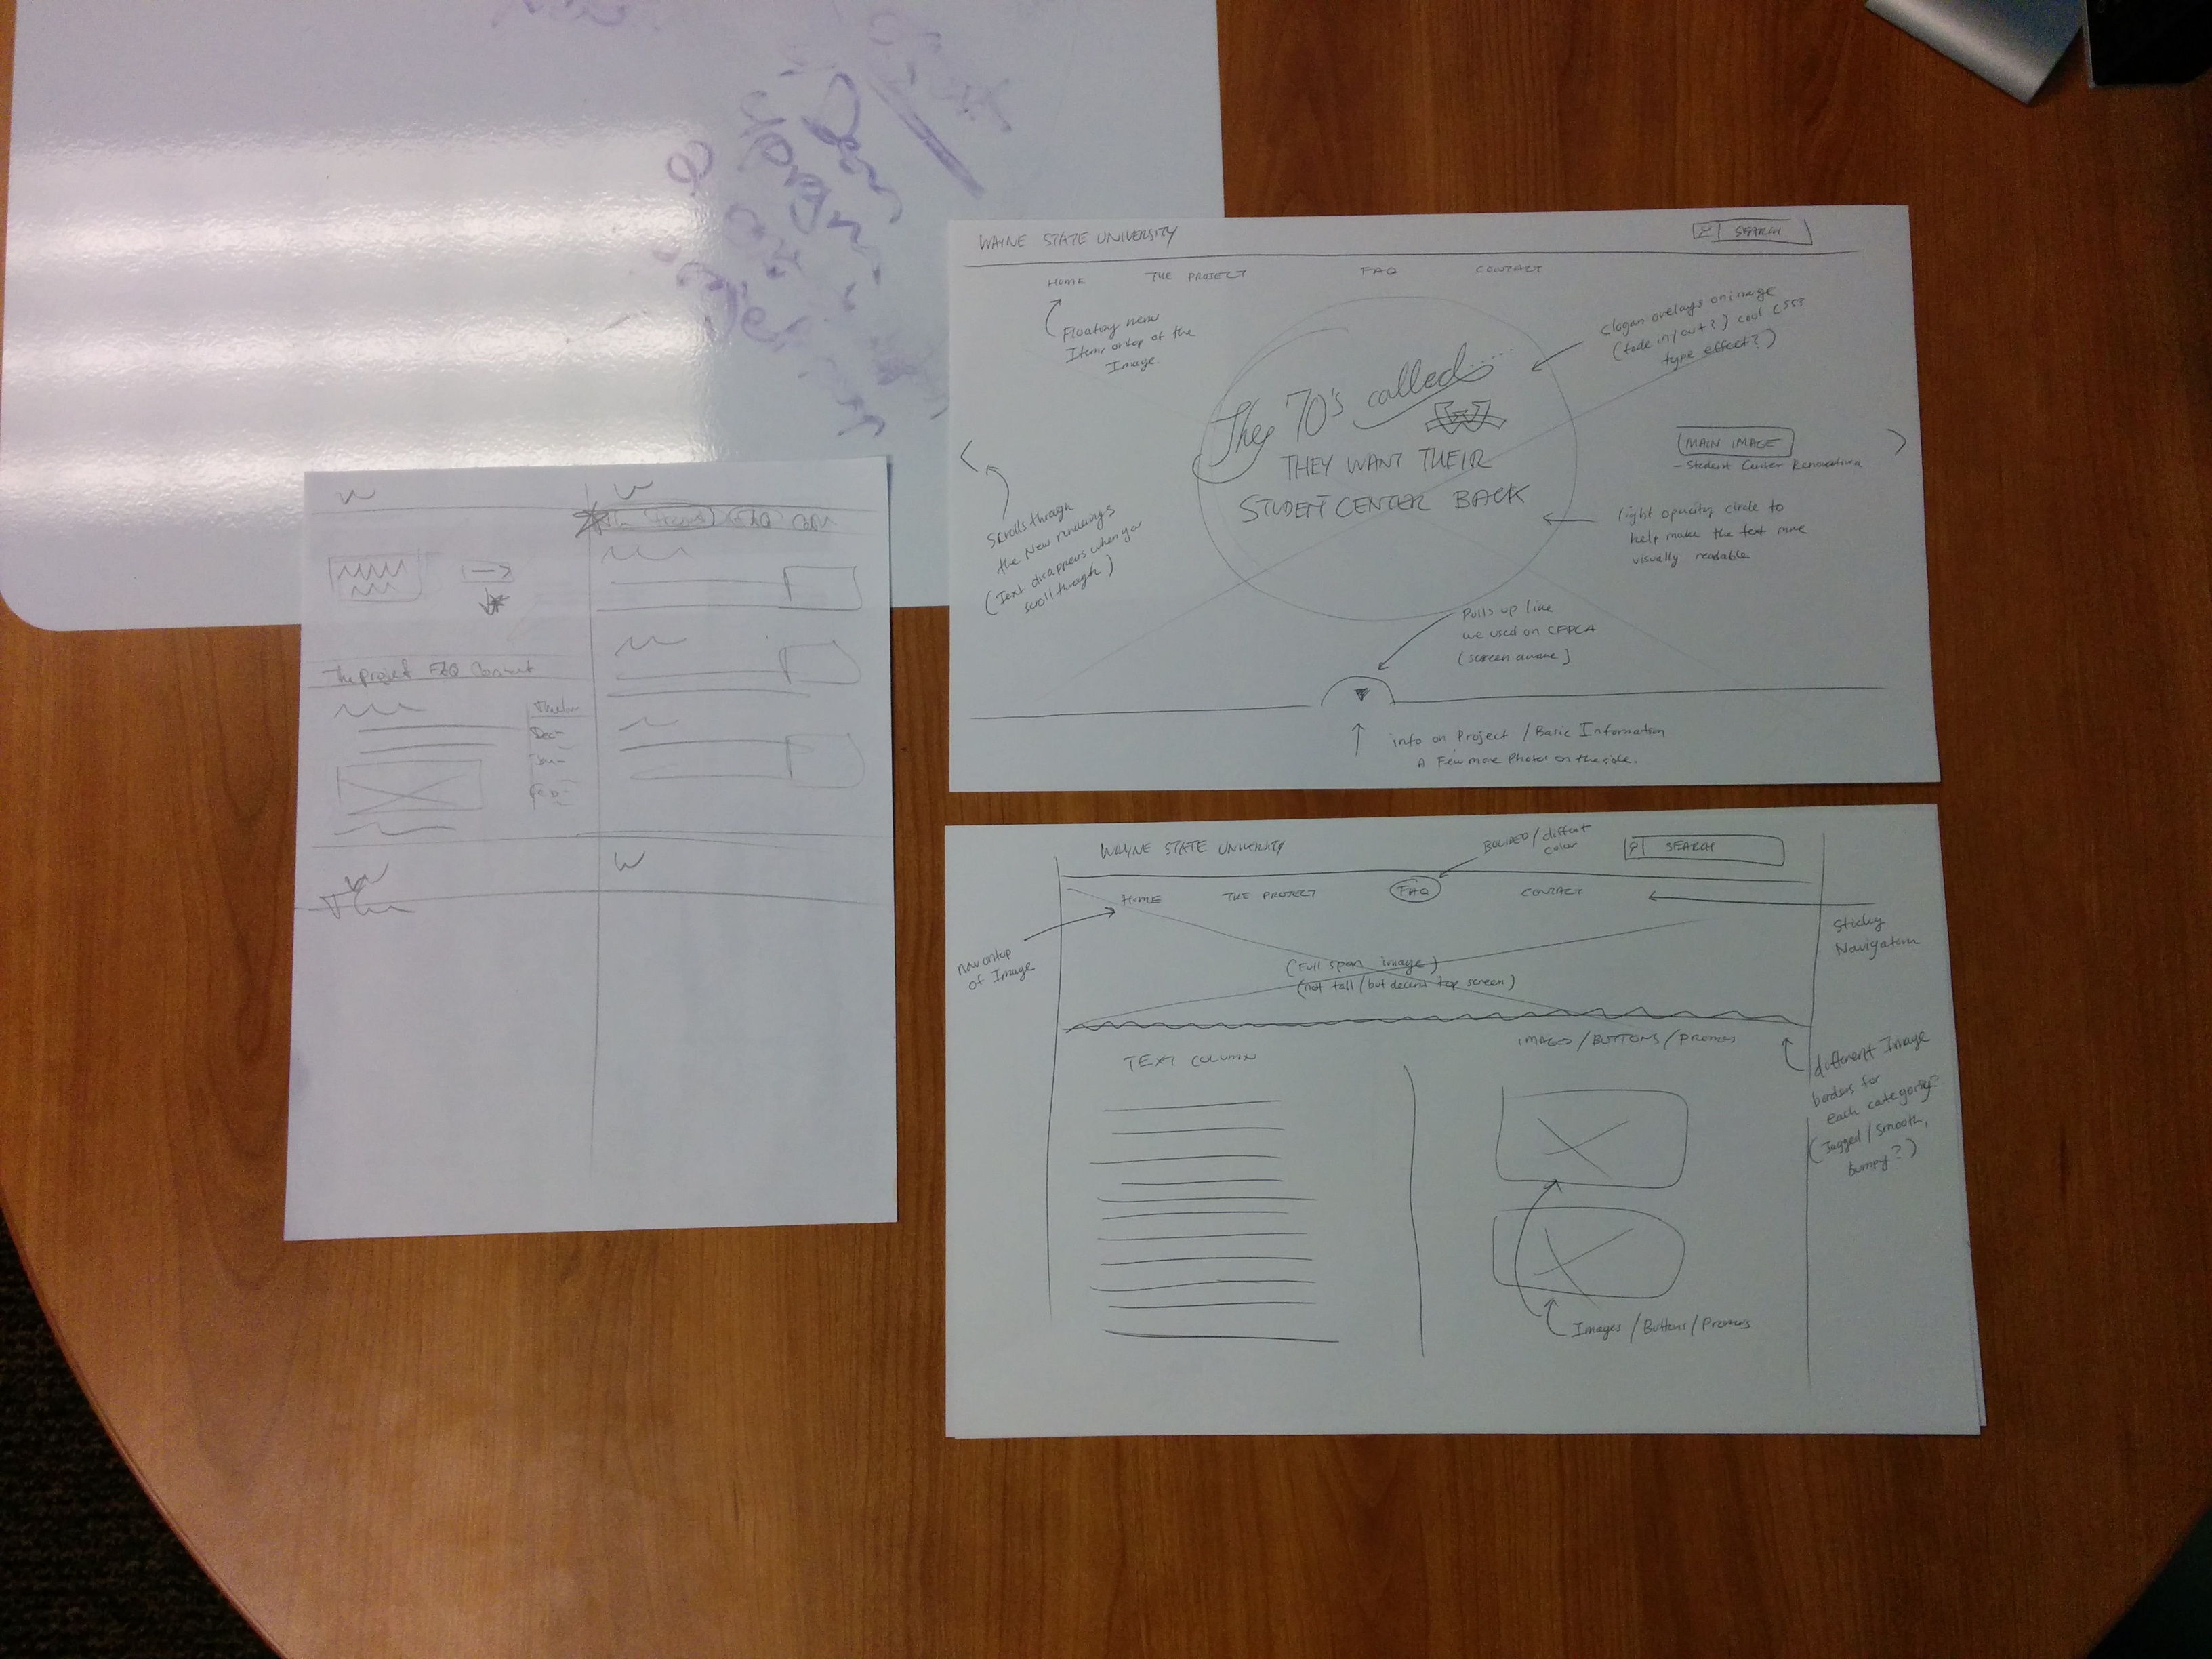 WAYNE STATE UNIVERSITY
SEARCH
HOME
THE PROJECT
FAQ
CONTACT
Floating menu
Items ontop of the
Image
Slogan overlays on image
(fade in/out?) cool CSS3
type effect?)
The 70's called.....
W
THEY WANT THEIR
STUDENT CENTER BACK
MAIN IMAGE
- Student Center Renovation
Scrolls through
the New renderings
(Text disappears when you
scroll through)
light opacity circle to
help make the text more
visually readable
Pulls up like
we used on CFPCA
(screen aware)
info on Project / Basic Information
A Few more Photos on the side.
W
W
FAQ
The project FAQ Contact
Dec-
Jan-
Feb-
W
W
WAYNE STATE UNIVERSITY
BOLDED/different
color
SEARCH
HOME
THE PROJECT
FAQ
CONTACT
Sticky
Navigation
Nav ontop
of Image
(Full span image)
(not tall/but decent top screen)
TEXT COLUMN
IMAGES/BUTTONS/PROMOS
different Image
borders for
each category?
(Jagged/smooth,
bumpy?)
Images/Buttons/Promos